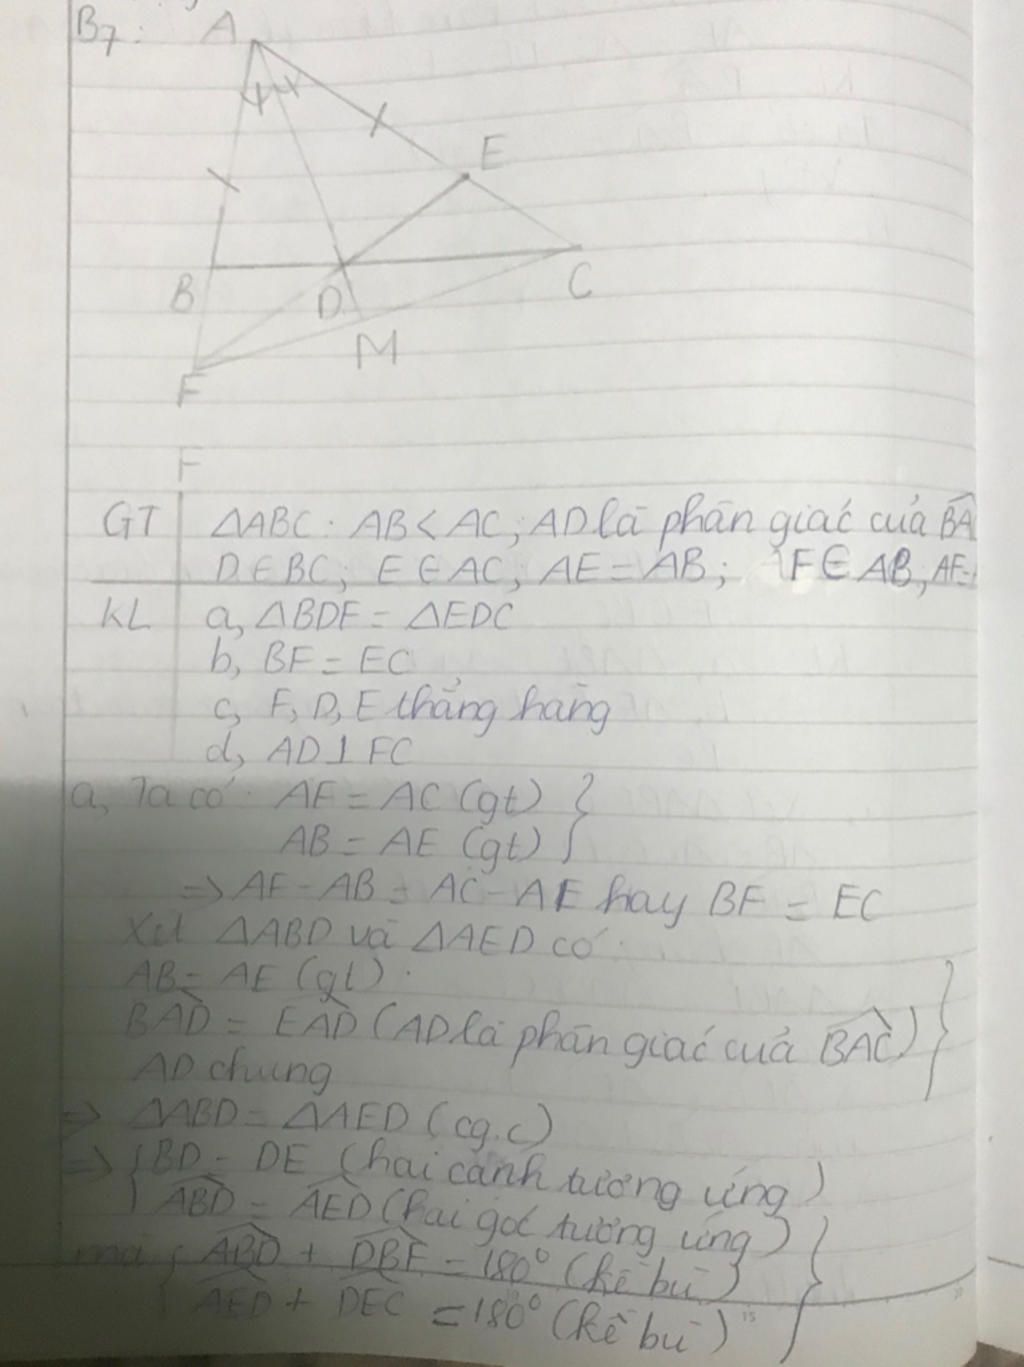 B7:
A
E
B
D
C
M
F
F
GT ΔABC: AB < AC; AD là phân giác của BA
D ∈ BC; E ∈ AC; AE = AB; F ∈ AB, AF =
KL a, ΔBDF = ΔEDC
b, BF = EC
c, F, D, E thẳng hàng
d, AD ⊥ FC
a, Ta có: AF = AC (gt)
AB = AE (gt)
⇒ AF - AB = AC - AE hay BF = EC
Xét ΔABD và ΔAED có:
AB = AE (gt)
BAD = EAD (AD là phân giác của BAC)
AD chung
⇒ ΔABD = ΔAED (c.g.c)
⇒ { BD = DE (hai cạnh tương ứng)
ABD = AED (hai góc tương ứng)
mà { ABD + DBF = 180° (kề bù)
AED + DEC = 180° (kề bù)